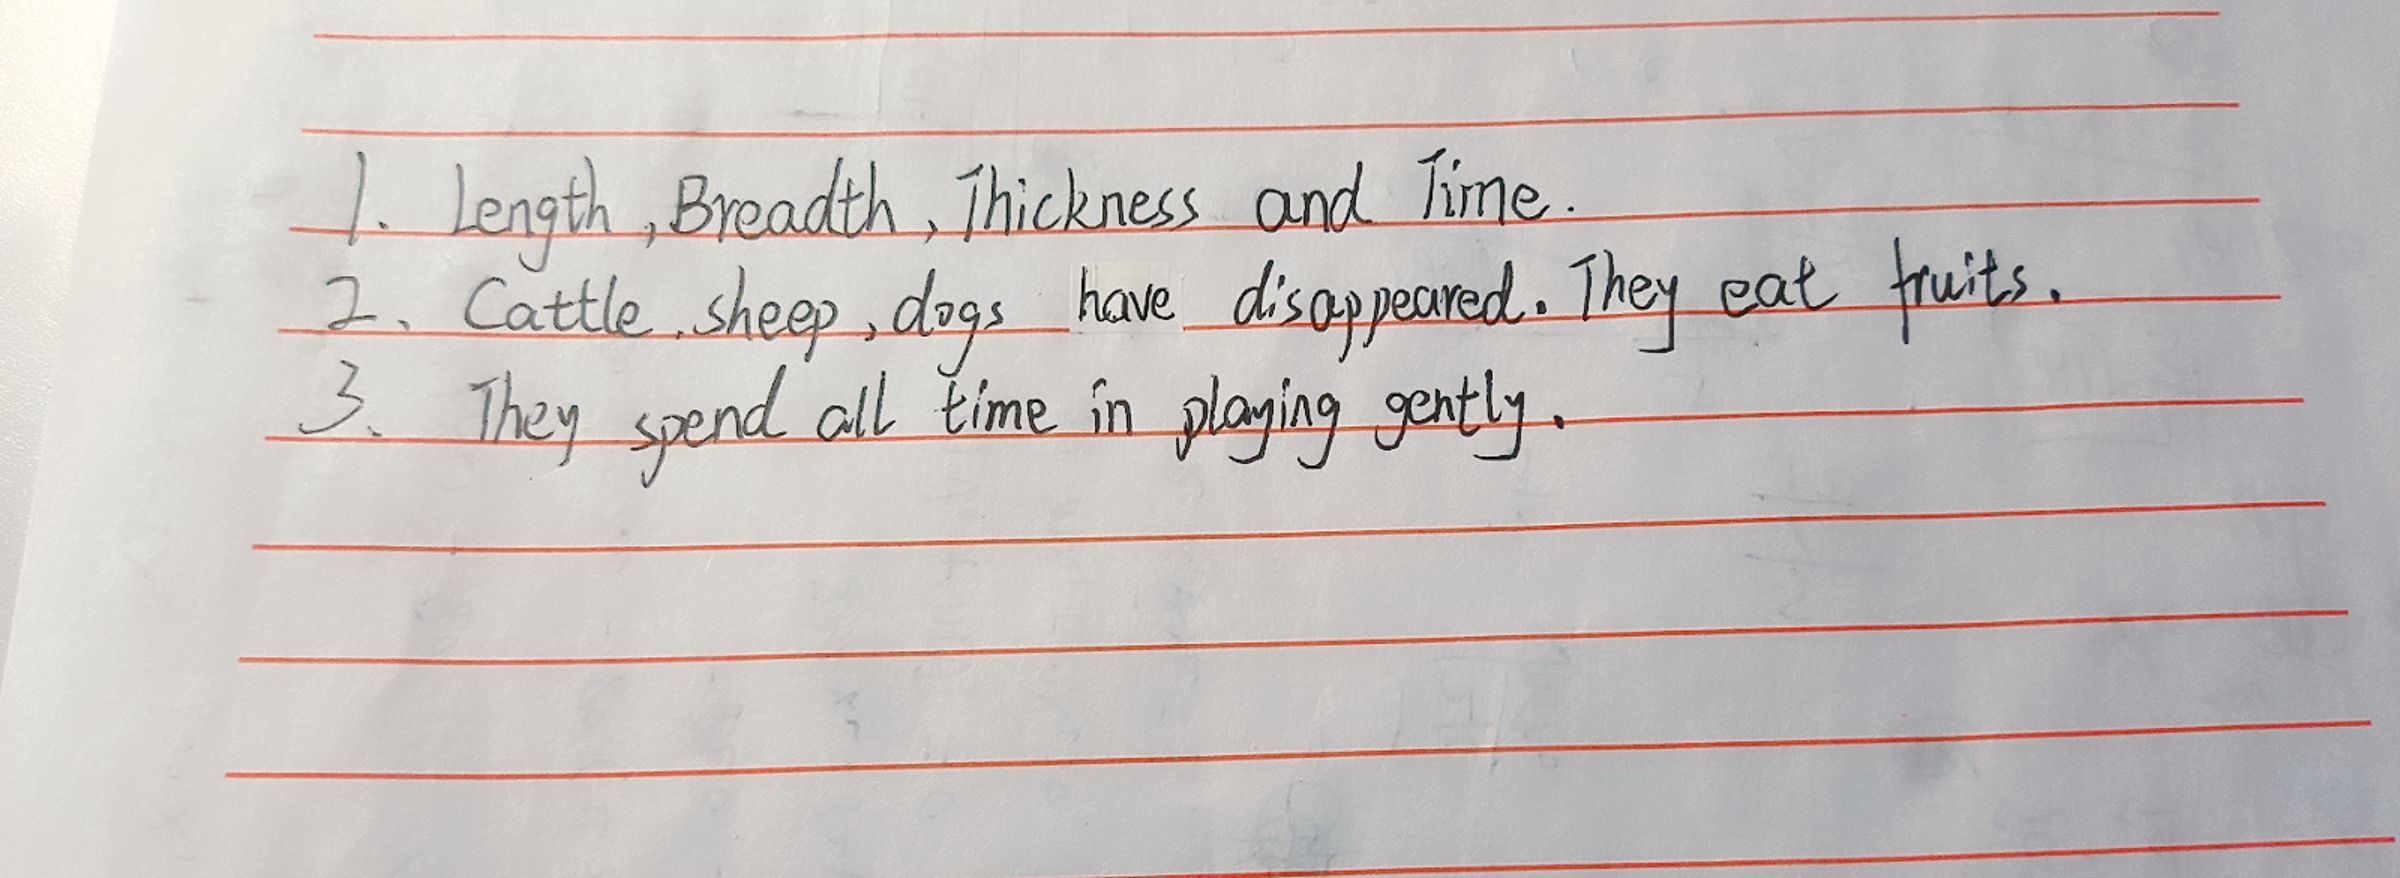 1. Length, Breadth, Thickness and Time.
2. Cattle, sheep, dogs have disappeared. They eat fruits.
3. They spend all time in playing gently.